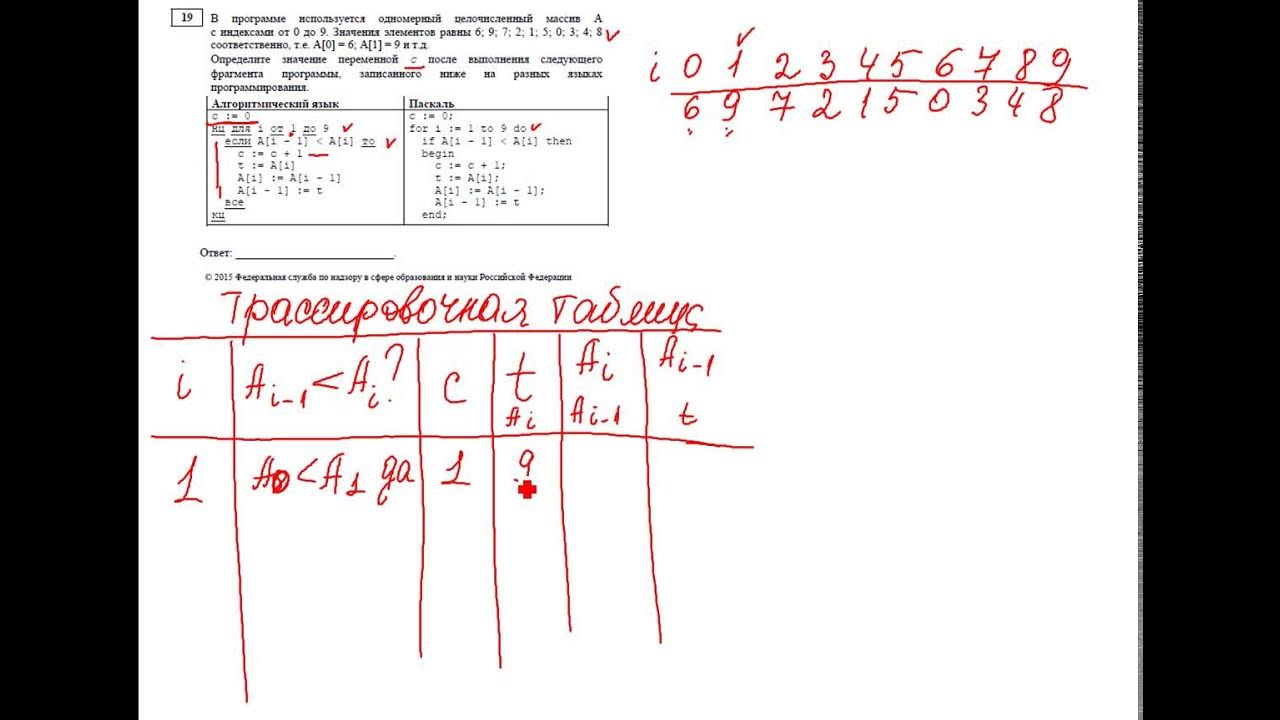 19
В программе используется одномерный целочисленный массив А
с индексами от 0 до 9. Значения элементов равны 6; 9; 7; 2; 1; 5; 0; 3; 4; 8
соответственно, т.е. A[0] = 6; A[1] = 9 и т.д.
Определите значение переменной с после выполнения следующего
фрагмента программы, записанного ниже на разных языках
программирования.
Алгоритмический язык
c := 0
нц для i от 1 до 9
если A[i - 1] < A[i] то
c := c + 1
t := A[i]
A[i] := A[i - 1]
A[i - 1] := t
все
кц
Паскаль
c := 0;
for i := 1 to 9 do
if A[i - 1] < A[i] then
begin
c := c + 1;
t := A[i];
A[i] := A[i - 1];
A[i - 1] := t
end;
Ответ: ___________________________.
© 2015 Федеральная служба по надзору в сфере образования и науки Российской Федерации
i 0 1 2 3 4 5 6 7 8 9
6 9 7 2 1 5 0 3 4 8
Трассировочная таблица
i Ai-1 < Ai? c t Ai Ai-1
Ai Ai-1 t
1 A0 < A1 да 1 9